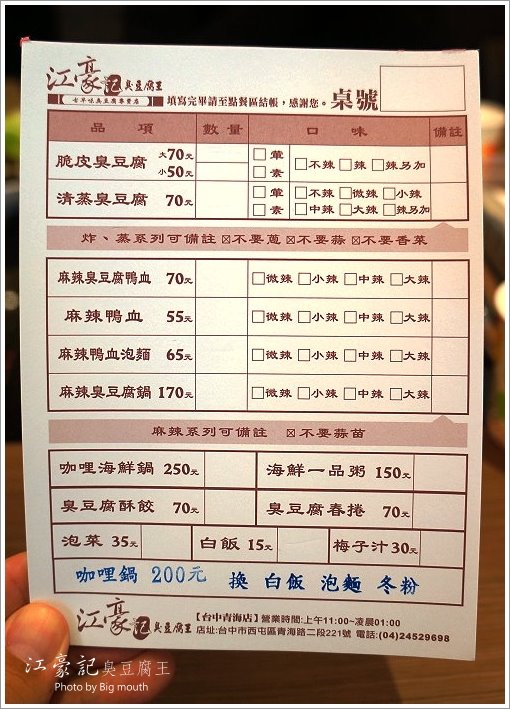 江豪記臭豆腐王
古早味臭豆腐專賣店
填寫完畢請至點餐區結帳，感謝您。 桌號
品項 數量 口味 備註
脆皮臭豆腐 大70元 小50元 □葷 □素 □不辣 □辣 □辣另加
清蒸臭豆腐 70元 □葷 □素 □不辣 □微辣 □小辣 □中辣 □大辣 □辣另加
炸、蒸系列可備註 ☒不要蔥 ☒不要蒜 ☒不要香菜
麻辣臭豆腐鴨血 70元 □微辣 □小辣 □中辣 □大辣
麻辣鴨血 55元 □微辣 □小辣 □中辣 □大辣
麻辣鴨血泡麵 65元 □微辣 □小辣 □中辣 □大辣
麻辣臭豆腐鍋 170元 □微辣 □小辣 □中辣 □大辣
麻辣系列可備註 ☒不要蒜苗
咖哩海鮮鍋 250元 海鮮一品粥 150元
臭豆腐酥餃 70元 臭豆腐春捲 70元
泡菜 35元 白飯 15元 梅子汁30元
咖哩鍋 200元 換 白飯 泡麵 冬粉
江豪記臭豆腐王
【台中青海店】營業時間:上午11:00~凌晨01:00
店址:台中市西屯區青海路二段221號 電話:(04)24529698
江豪記臭豆腐王
Photo by Big mouth